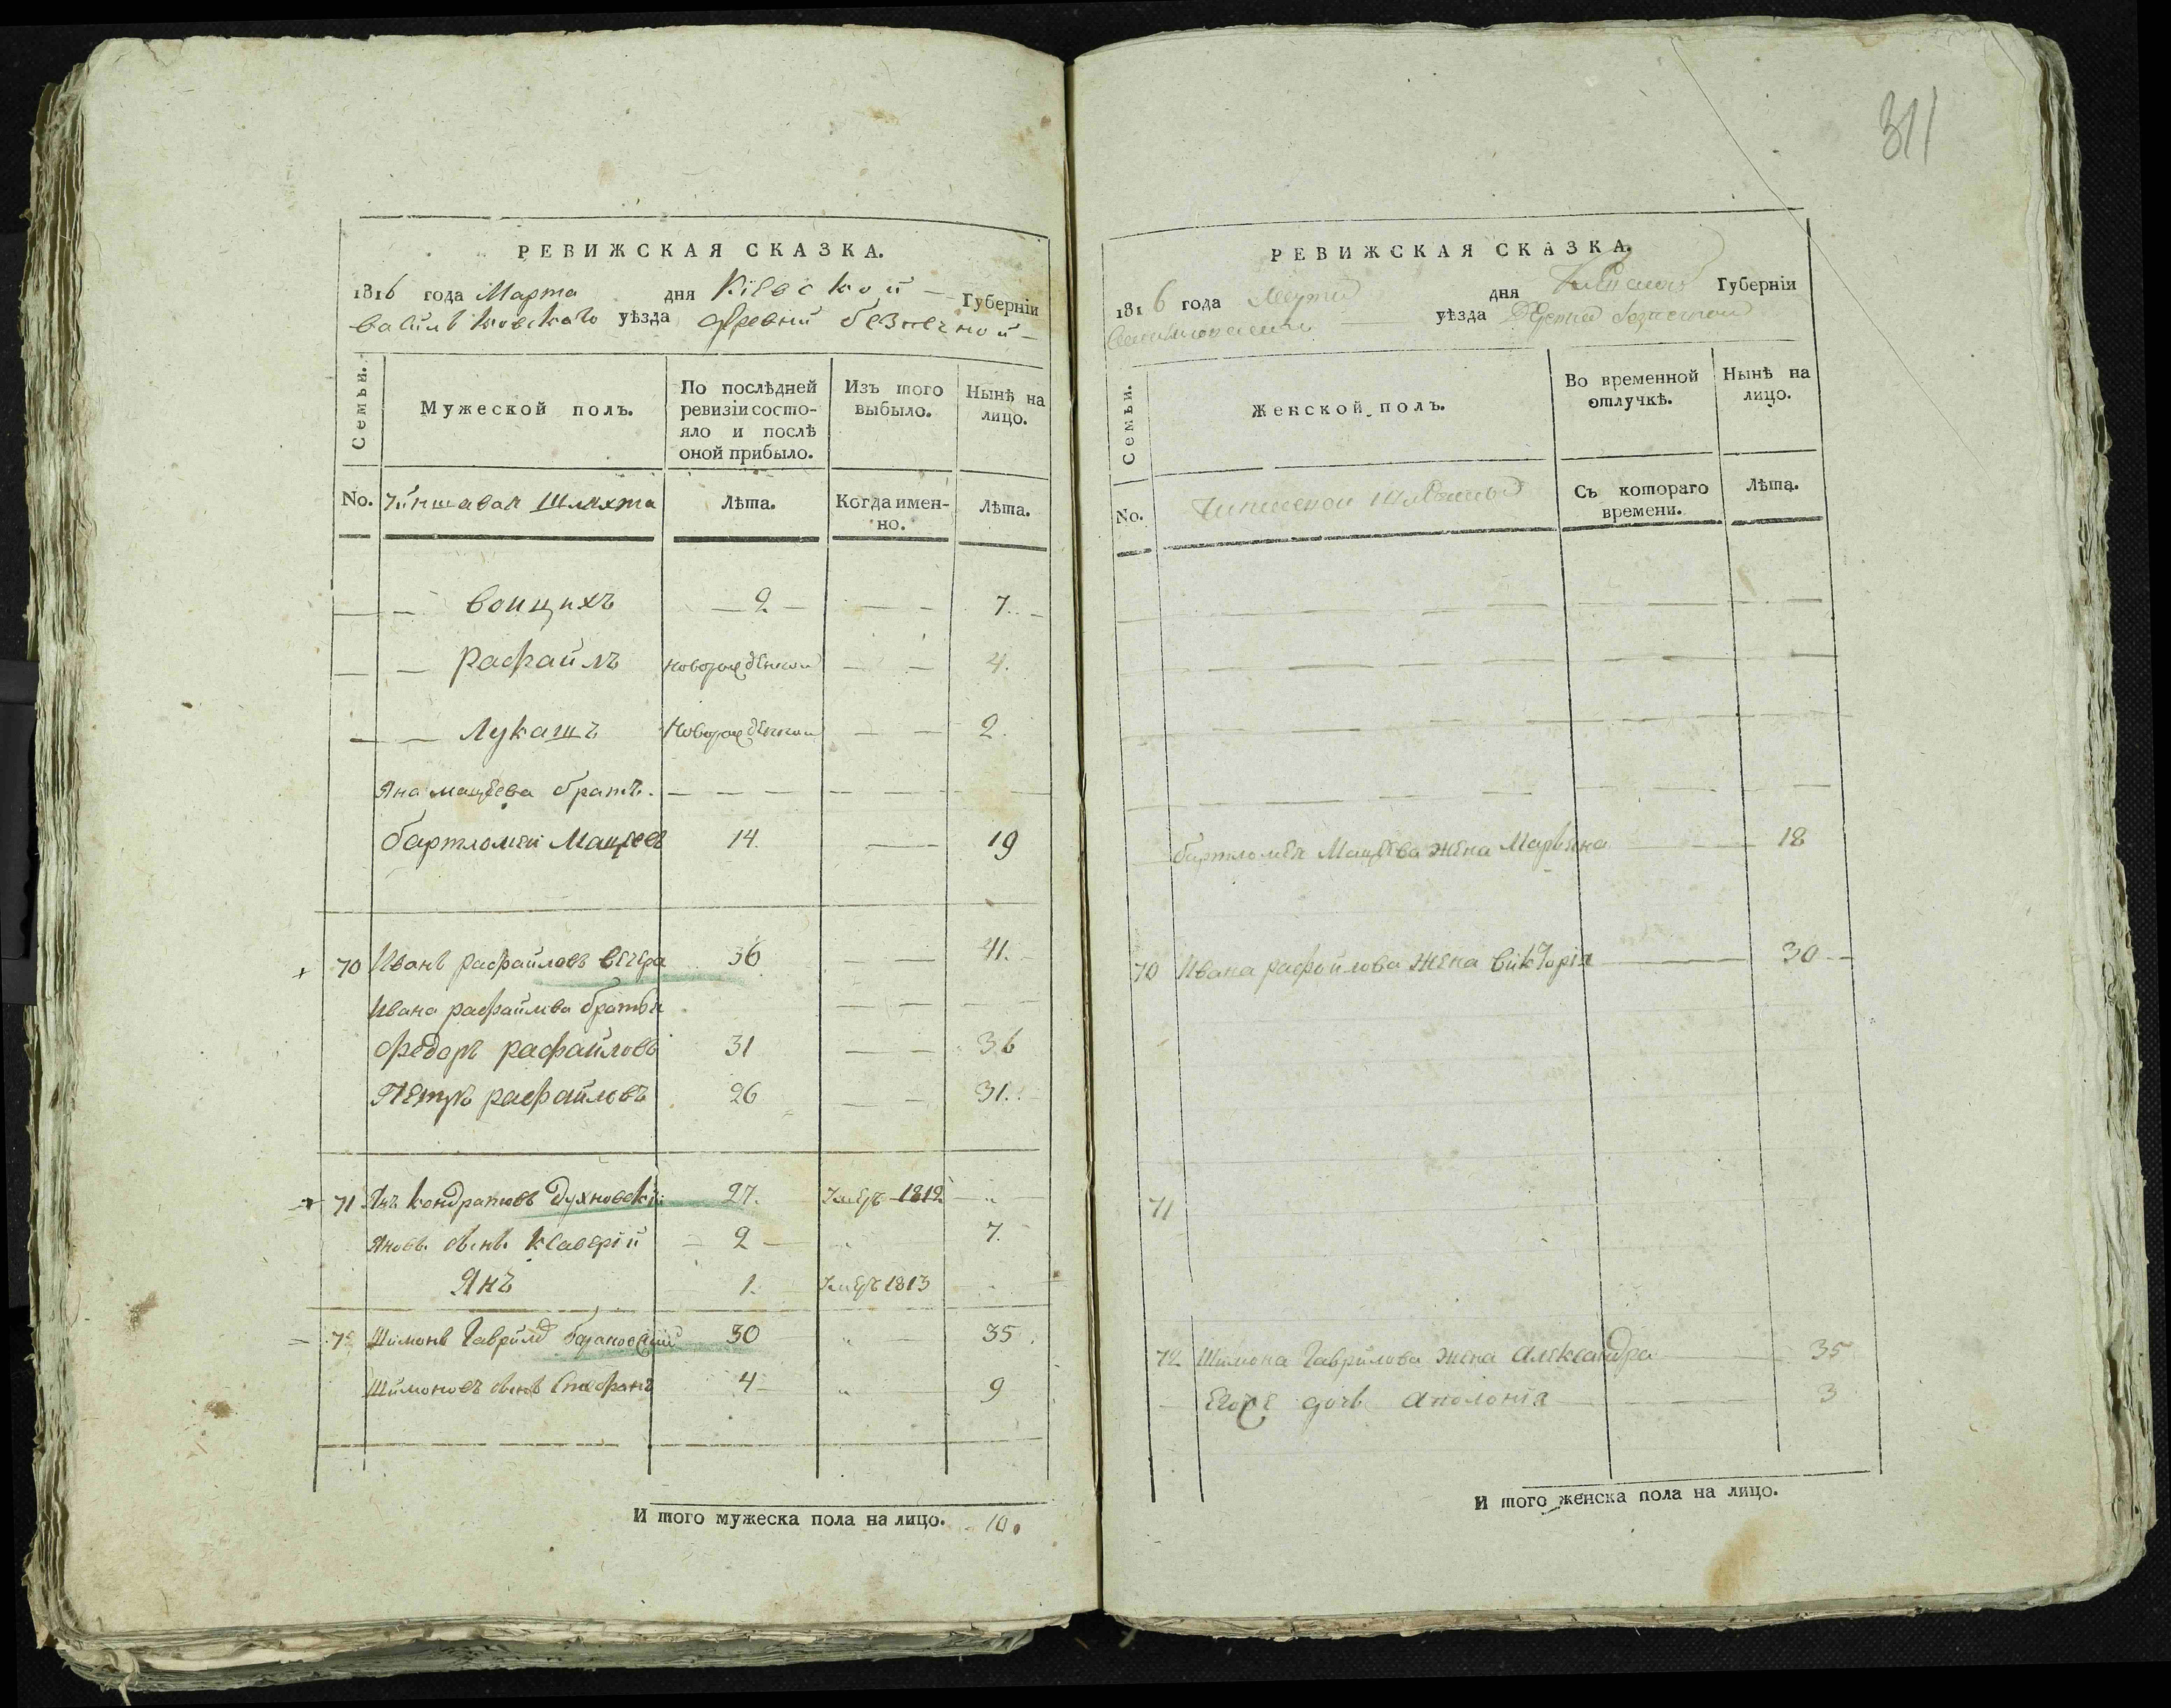 РЕВИЖСКАЯ СКАЗКА.
1816 года Марта дня Кіевской Губерніи
Васильковскаго уѣзда деревни безпечной
Семьи. Мужеской полъ. По послѣдней ревизіи состояло и послѣ оной прибыло. Изъ того выбыло. Нынѣ на лицо.
No. Чиншавая Шляхта Лѣта. Когда именно. Лѣта.
Войцихъ 2 7.
Рафаилъ новорожденной 4.
Лукашъ Новорожденной 2.
Яна мацѣева братъ.
бартломей Мацѣевъ 14. 19
70 Иванъ рафайловъ вечера 36 41.
Ивана рафайлова братья
Федоръ рафайловъ 31 36
Петръ рафайловъ 26 31.
71 Янъ кондратовъ Духновскій 27. Умеръ 1812
Яновъ сынъ Ксаверій 2 7.
Янъ 1. Умеръ 1813
72 Шимонъ Гаврилов 30 35.
Шимоновъ сынъ Стефанъ 4 9
И того мужеска пола на лицо. 10.
311
РЕВИЖСКАЯ СКАЗКА.
1816 года Марта дня Губерніи
уѣзда безпечной
Семьи. Женской полъ. Во временной отлучкѣ. Нынѣ на лицо.
No. Съ котораго времени. Лѣта.
бартломея Мацѣева жена Марьяна 18
70 Ивана рафойлова жена Викторія 30
71
72 Шимона Гаврилова жена Александра 35
дочь Аполонія 3
И того женска пола на лицо.